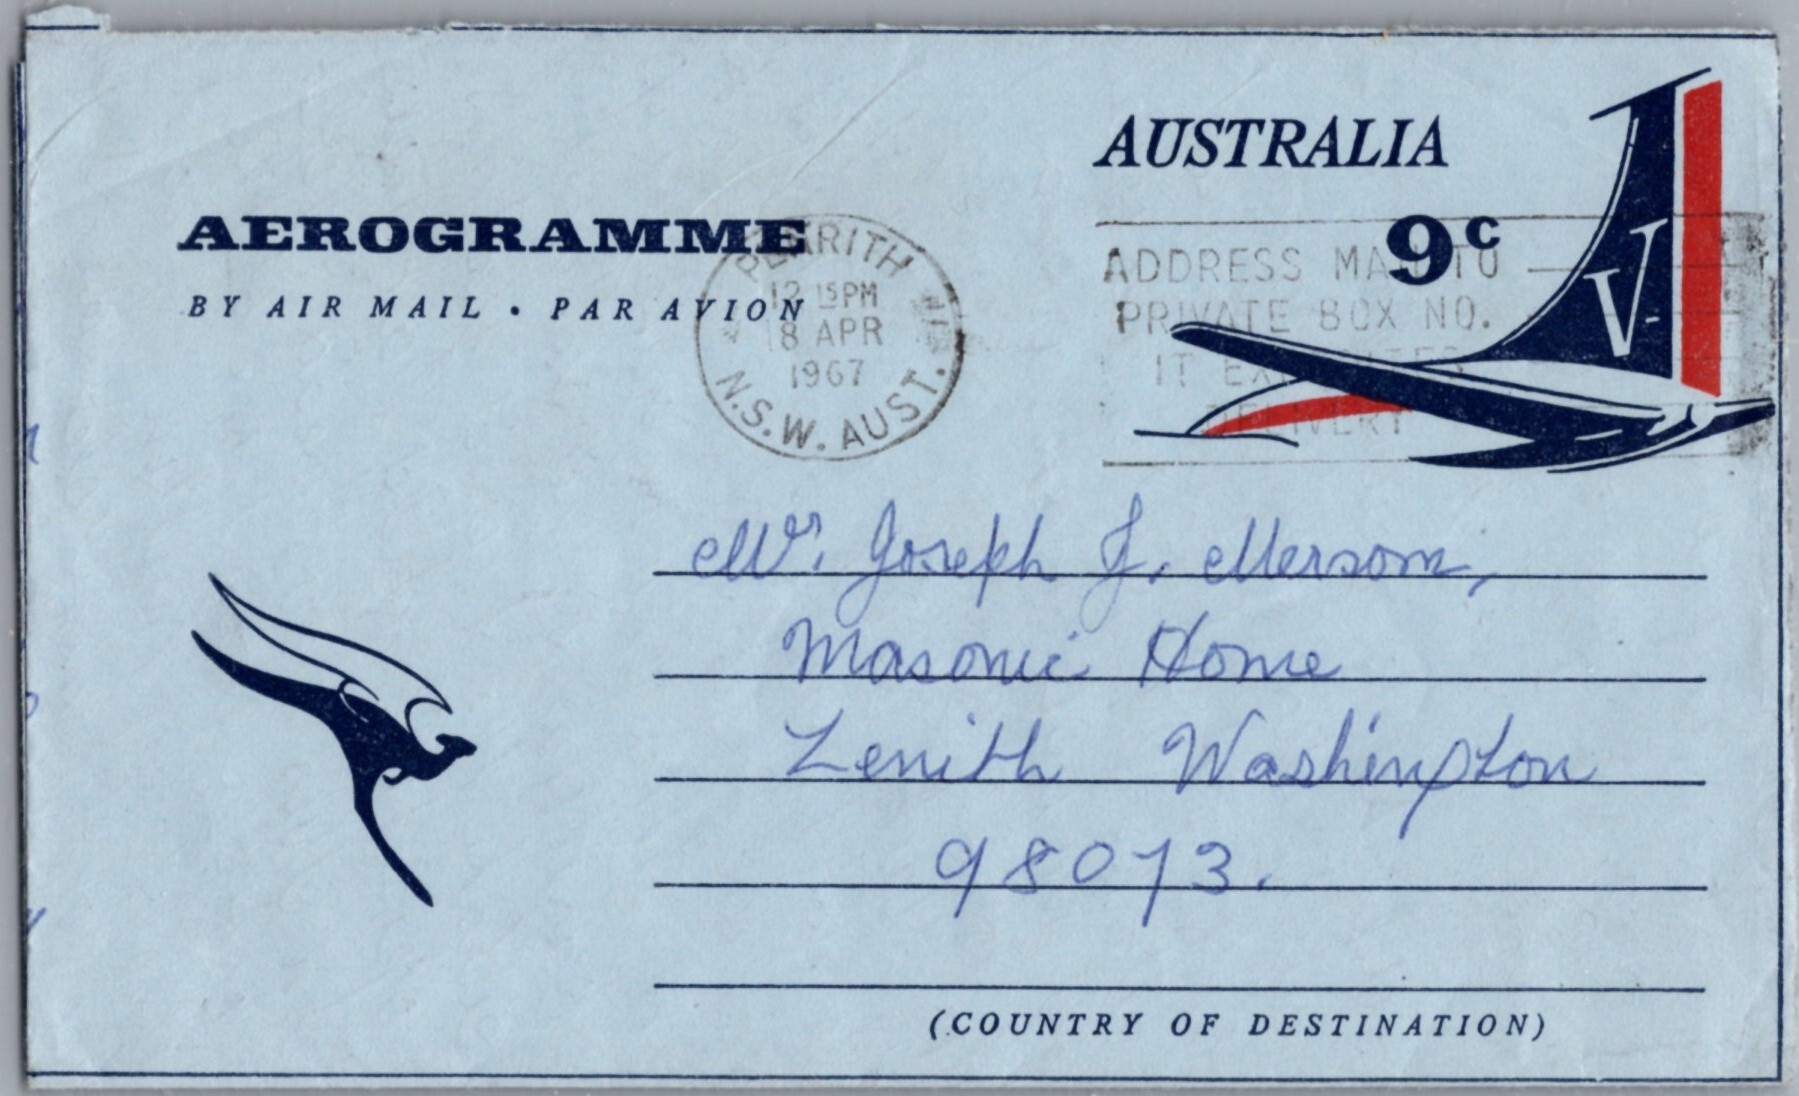 AUSTRALIA
9c
AEROGRAMME
BY AIR MAIL • PAR AVION
PENRITH
12 15PM
18 APR
1967
N.S.W. AUST.
ADDRESS MAIL TO
PRIVATE BOX NO.
IT EXPEDITES
DELIVERY
V
Mr. Joseph J. Mersom,
Masonic Home
Zenith Washington
98073.
(COUNTRY OF DESTINATION)